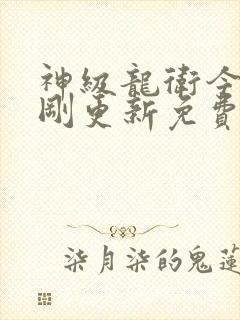 神級龍衛今
剛更新免費
柒月柒的鬼蓮